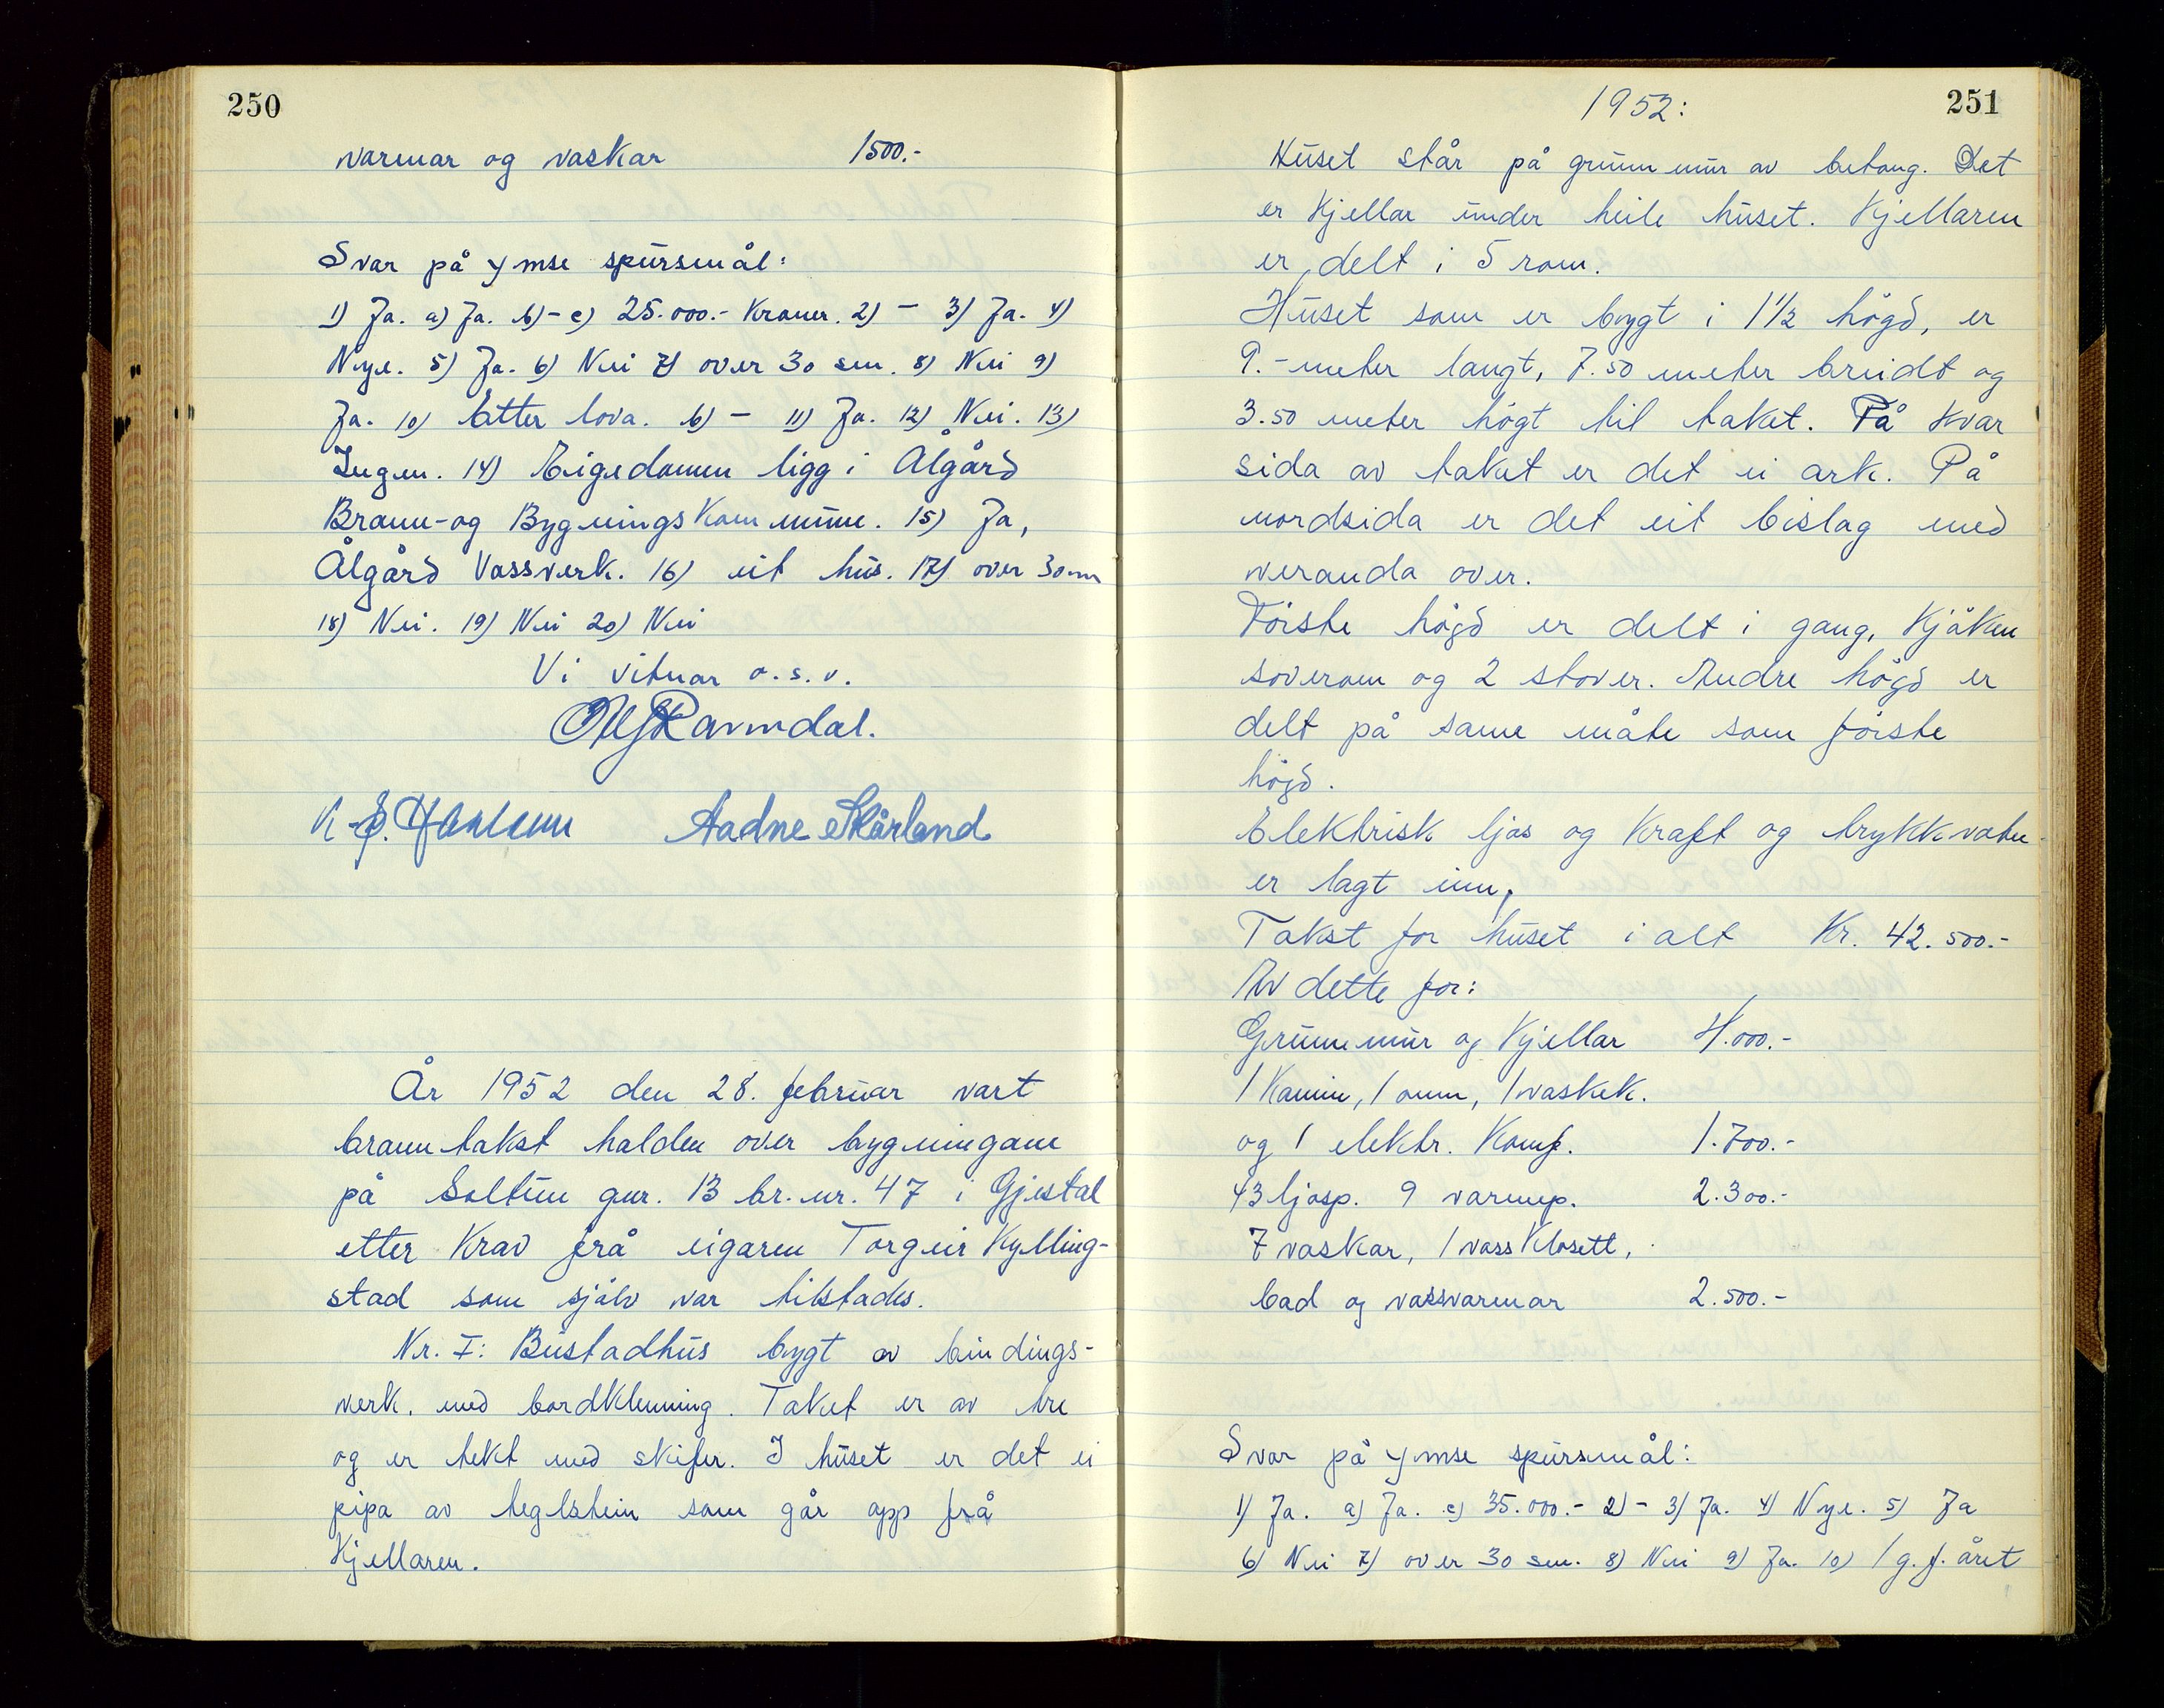 250
varmar og vaskar 1500.-
Svar på ymse spursmål:
1) Ja. a) Ja. b) - c) 25.000.- Kroner. 2) - 3) Ja. 4)
Nye. 5) Ja. 6) Nei 7) over 30 sm. 8) Nei 9)
Ja. 10) Etter lova. b) - 11) Ja. 12) Nei. 13)
Ingen. 14) Eigedomen ligg i Ålgård
Brann- og Bygningskommune. 15) Ja,
Ålgård Vassverk. 16) eit hus. 17) over 30 m
18) Nei. 19) Nei 20) Nei
Vi vitnar o.s.v.
Ravndal.
Aadne Skårland
År 1952 den 28. februar vart
branntakst halden over bygningane
på Soltun gnr. 13 br.nr. 47 i Gjestal
etter Krav frå eigaren Torgeir Kylling-
stad som sjølv var tilstades.
Nr. I: Bustadhus bygt av bindings-
verk. med bordklenning. Taket er av tre
og er tekt med skifer. I huset er det ei
pipa av teglstein som går opp frå
Kjellaren.
1952:
251
Huset står på grunnmur av betong. Det
er Kjellar under heile huset. Kjellaren
er delt i 5 rom.
Huset som er bygt i 1 1/2 högd, er
9.- meter langt, 7.50 meter breidt og
3.50 meter högt til taket. På kvar
sida av taket er det ei ark. På
nordsida er det eit bislag med
veranda over.
Förste högd er delt i gang, Kjöken
soverom og 2 stover. Andre högd er
delt på same måte som förste
högd.
Elektrisk ljos og Kraft og trykkvatn
er lagt inn,
Takst for huset i alt Kr. 42.500.-
Av dette for:
Grunnmur og Kjellar 4.000.-
1 Kamin, 1 omn, 1 vaskek.
og 1 elektr. Komf. 1.700.-
43 ljosp. 9 varmep. 2.300.-
7 vaskar, 1 vassklosett,
bad og vassvarmar 2.500.-
Svar på ymse spursmål:
1) Ja. a) Ja. c) 35.000.- 2) - 3) Ja. 4) Nye. 5) Ja
6) Nei 7) over 30 sm. 8) Nei 9) Ja. 10) 1 g. f. året